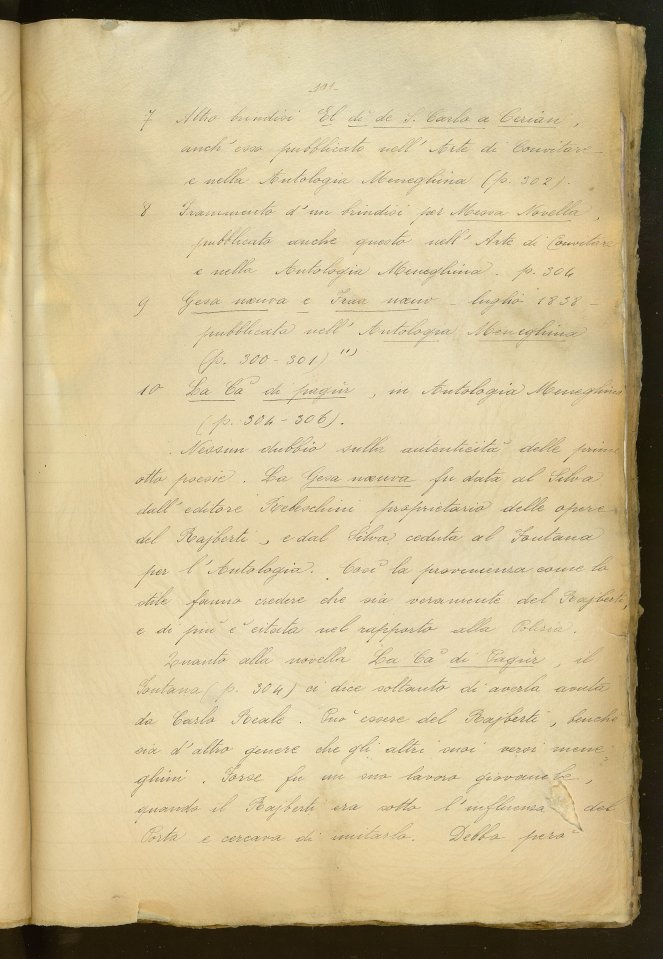 101
7 Altro brindisi El dì de S. Carlo a Cerian,
anch'esso pubblicato nell'Arte di Convitare
e nella Antologia Meneghina (p. 302).
8 Frammento d'un brindisi per Messa Novella,
pubblicato anche questo nell'Arte di Convitare
e nella Antologia Meneghina. p. 304
9 Gesa nœuva e Fraa nœuv - luglio 1838 -
pubblicata nell'Antologia Meneghina
(p. 300 - 301) ")
10 La Cà di pagür, in Antologia Meneghina
(p. 304 - 306).
Nessun dubbio sulla autenticità delle prime
otto poesie. La Gesa nœuva fu data al Silva
dall'editore Rebeschini proprietario delle opere
del Rajberti, e dal Silva ceduta al Fontana
per l'Antologia. Così la provenienza come lo
stile fanno credere che sia veramente del Rajberti,
e di più è citata nel rapporto alla Polizia.
Quanto alla novella La Cà di Pagür, il
Fontana (p. 304) ci dice soltanto di averla avuta
da Carlo Reale. Può essere del Rajberti, benché
sia d'altro genere che gli altri suoi versi mene-
ghini. Forse fu un suo lavoro giovanile,
quando il Rajberti era sotto l'influenza del
Porta e cercava di imitarlo. Debbo però